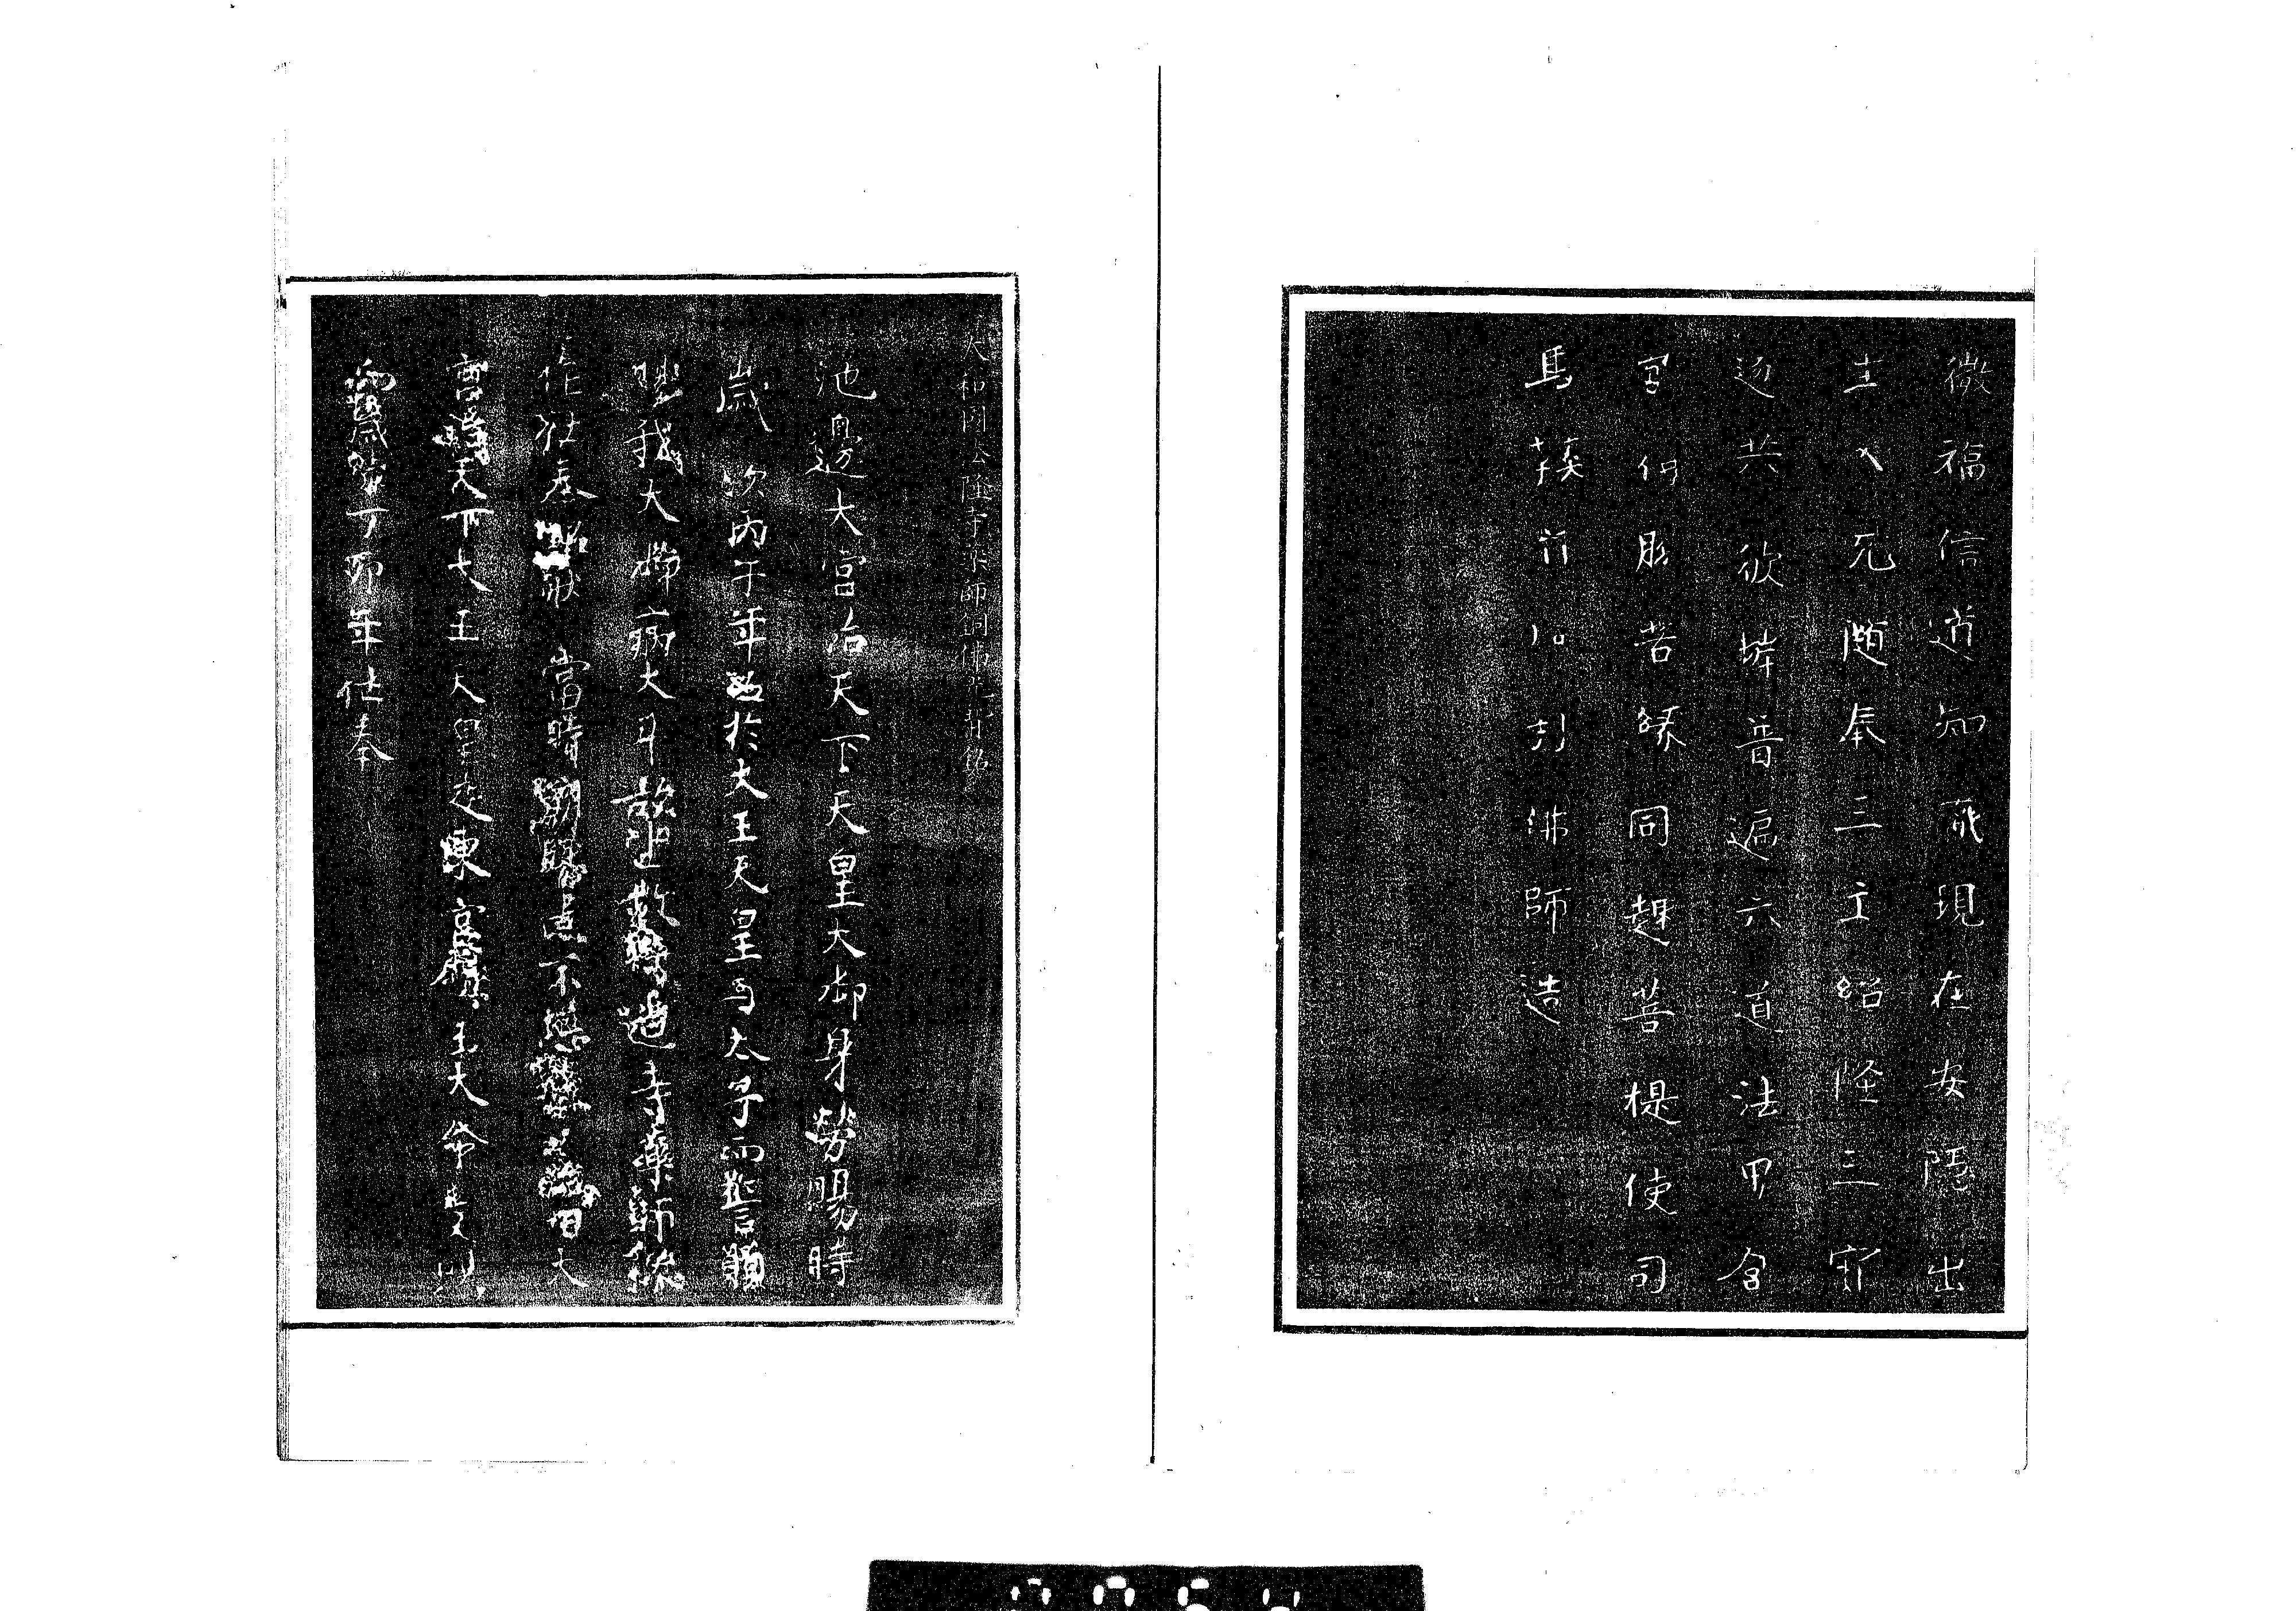 微福信道知識現在安隱出
生入死随奉三主紹隆三寶
遂共彼岸普遍六道法界含
識得脱苦縁同趣菩提使司
馬鞍首止利佛師造
大和國法隆寺薬師銅佛光背銘
池邊大宮治天下天皇大御身勞賜時
歳次丙午年召於大王天皇与太子而誓願
賜我大御病太平欲坐故将造寺薬師像
作仕奉詔然當時崩賜造不堪者小治田大
宮治天下大王天皇及東宮聖王大命受賜
而歳次丁卯年仕奉